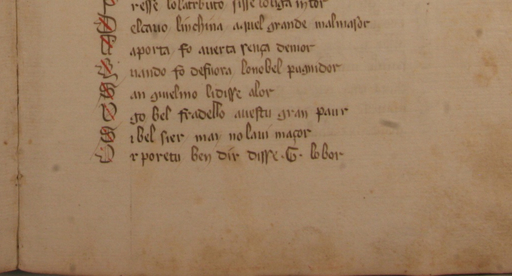 resse lo latributo sisse
el cavo linchina aquel grande malmasor
La porta fo averta sença demor
Quando fo defuora lonobel pugnidor
San guielmo li disse alor
Ugo bel fradello avestu gran paur
Si bel sier mai no lavi maçor
Or poretu ben dir disse .G. lo bor